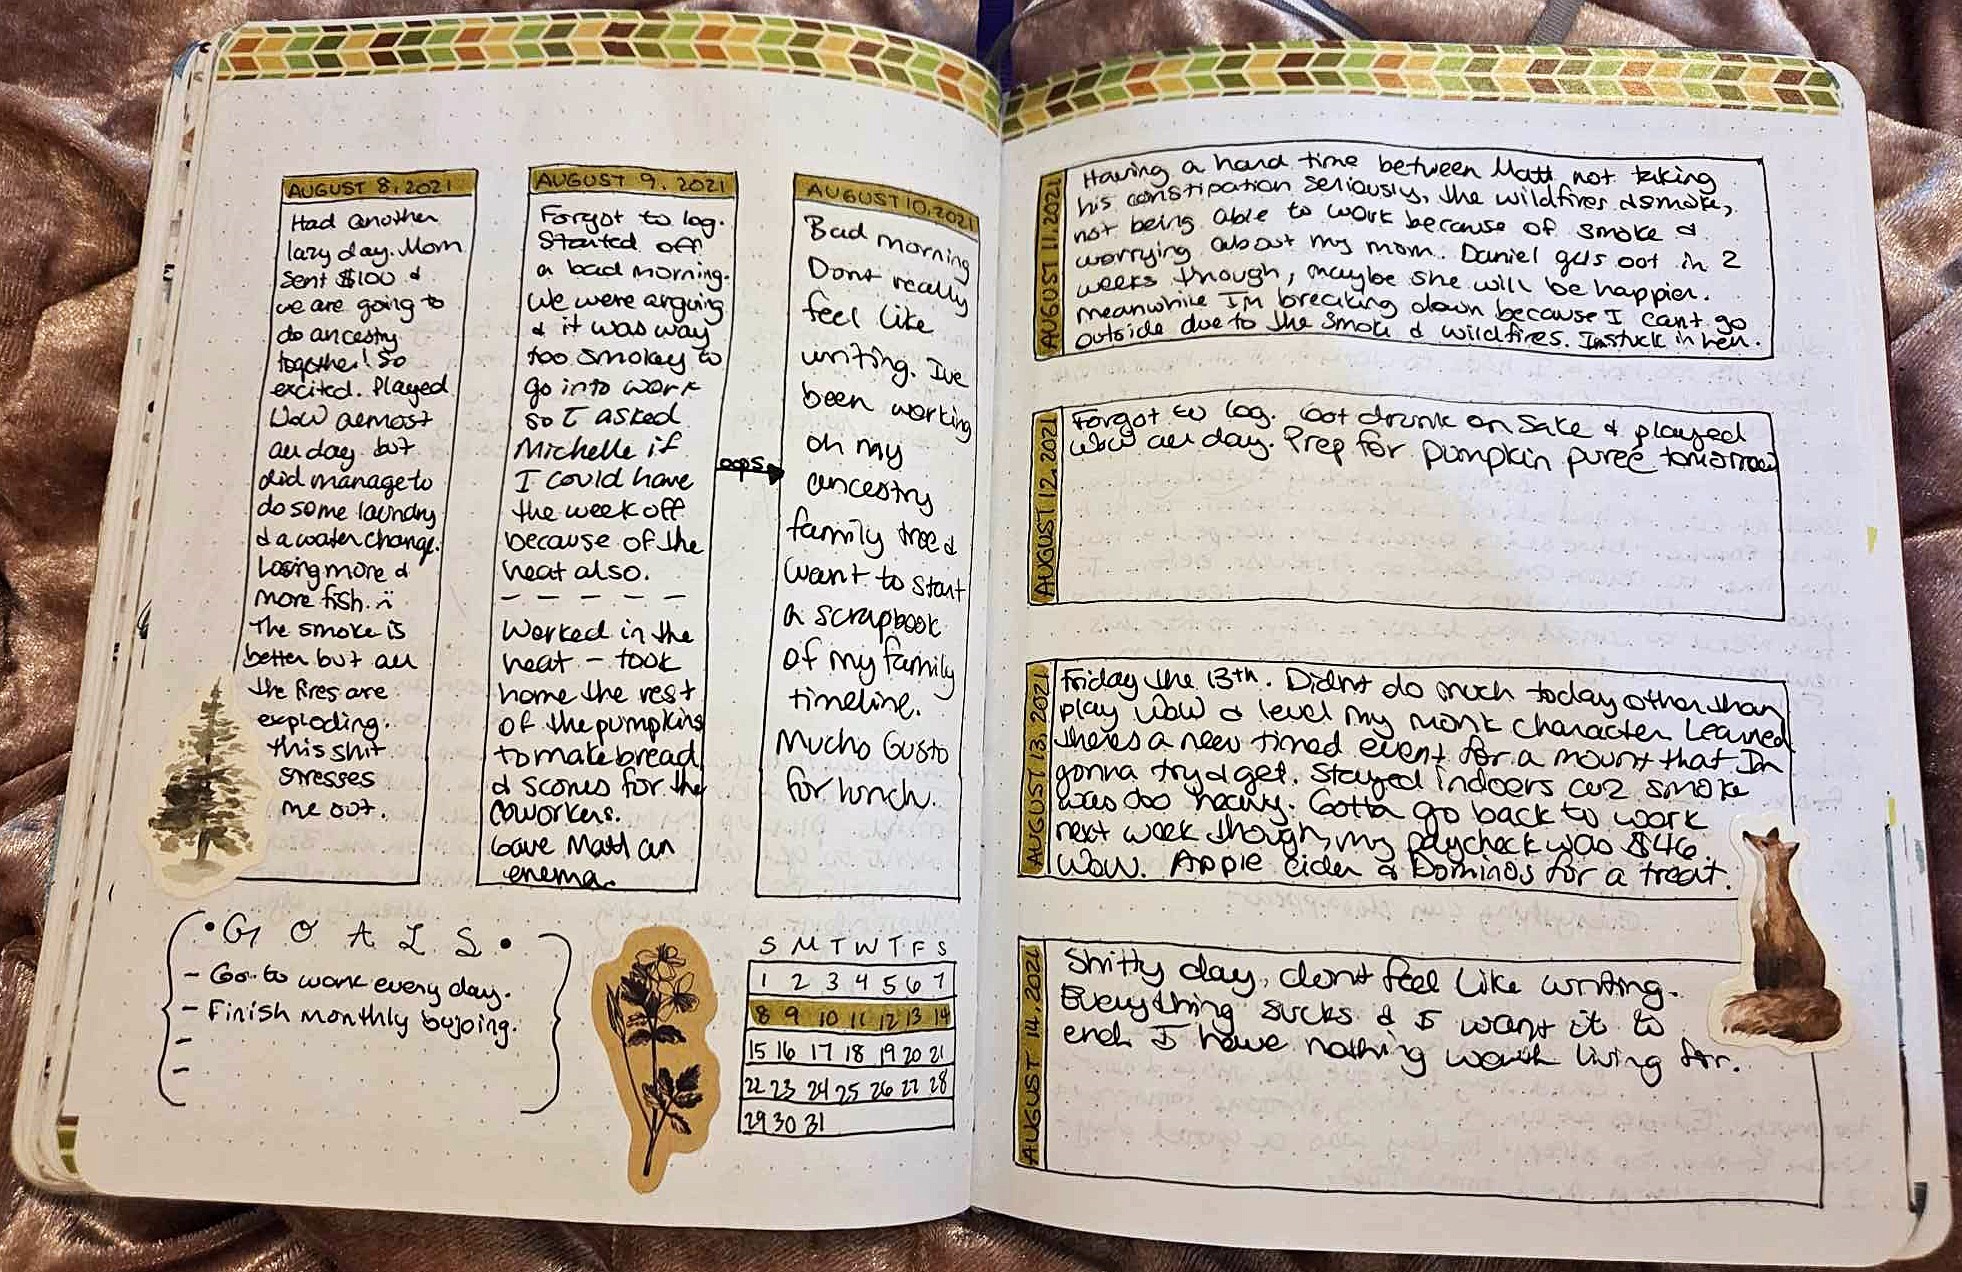 AUGUST 8, 2021
Had another
lazy day. Mom
sent $100 &
we are going to
do ancestry
together! So
excited. Played
WoW almost
all day but
did manage to
do some laundry
& a water change.
Losing more &
more fish.
The smoke is
better but all
the fires are
exploding.
this shit
stresses
me out.
AUGUST 9, 2021
Forgot to log.
Started off
a bad morning.
We were arguing
& it was way
too smokey to
go into work
so I asked
Michelle if
I could have
the week off
because of the
heat also.
- - - - - -
Worked in the
heat - took
home the rest
of the pumpkins
to make bread
& scones for the
coworkers.
Gave Matt an
enema.
oops
AUGUST 10, 2021
Bad morning
Dont really
feel like
writing. Ive
been working
on my
ancestry
family tree &
want to start
a scrapbook
of my family
timeline.
Mucho Gusto
for lunch.
• G O A L S •
- Go to work every day.
- Finish monthly bujoing.
-
-
S M T W T F S
1 2 3 4 5 6 7
8 9 10 11 12 13 14
15 16 17 18 19 20 21
22 23 24 25 26 27 28
29 30 31
AUGUST 11, 2021
Having a hard time between Matt not taking
his constipation seriously, the wildfires & smoke,
not being able to work because of smoke &
worrying about my mom. Daniel gets out in 2
weeks though, maybe she will be happier.
meanwhile Im breaking down because I cant go
outside due to the smoke & wildfires. Im stuck in here.
AUGUST 12, 2021
Forgot to log. Got drunk on Sake & played
WoW all day. Prep for pumpkin puree tomorrow
AUGUST 13, 2021
Friday the 13th. Didnt do much today other than
play WoW & level my monk character. Learned
theres a new timed event for a mount that Im
gonna try & get. Stayed indoors cuz smoke
was too heavy. Gotta go back to work
next week though, my paycheck was $46.
Wow. Apple cider & Dominos for a treat.
AUGUST 14, 2021
Shitty day, dont feel like writing.
Everything sucks & I want it to
end. I have nothing worth living for.